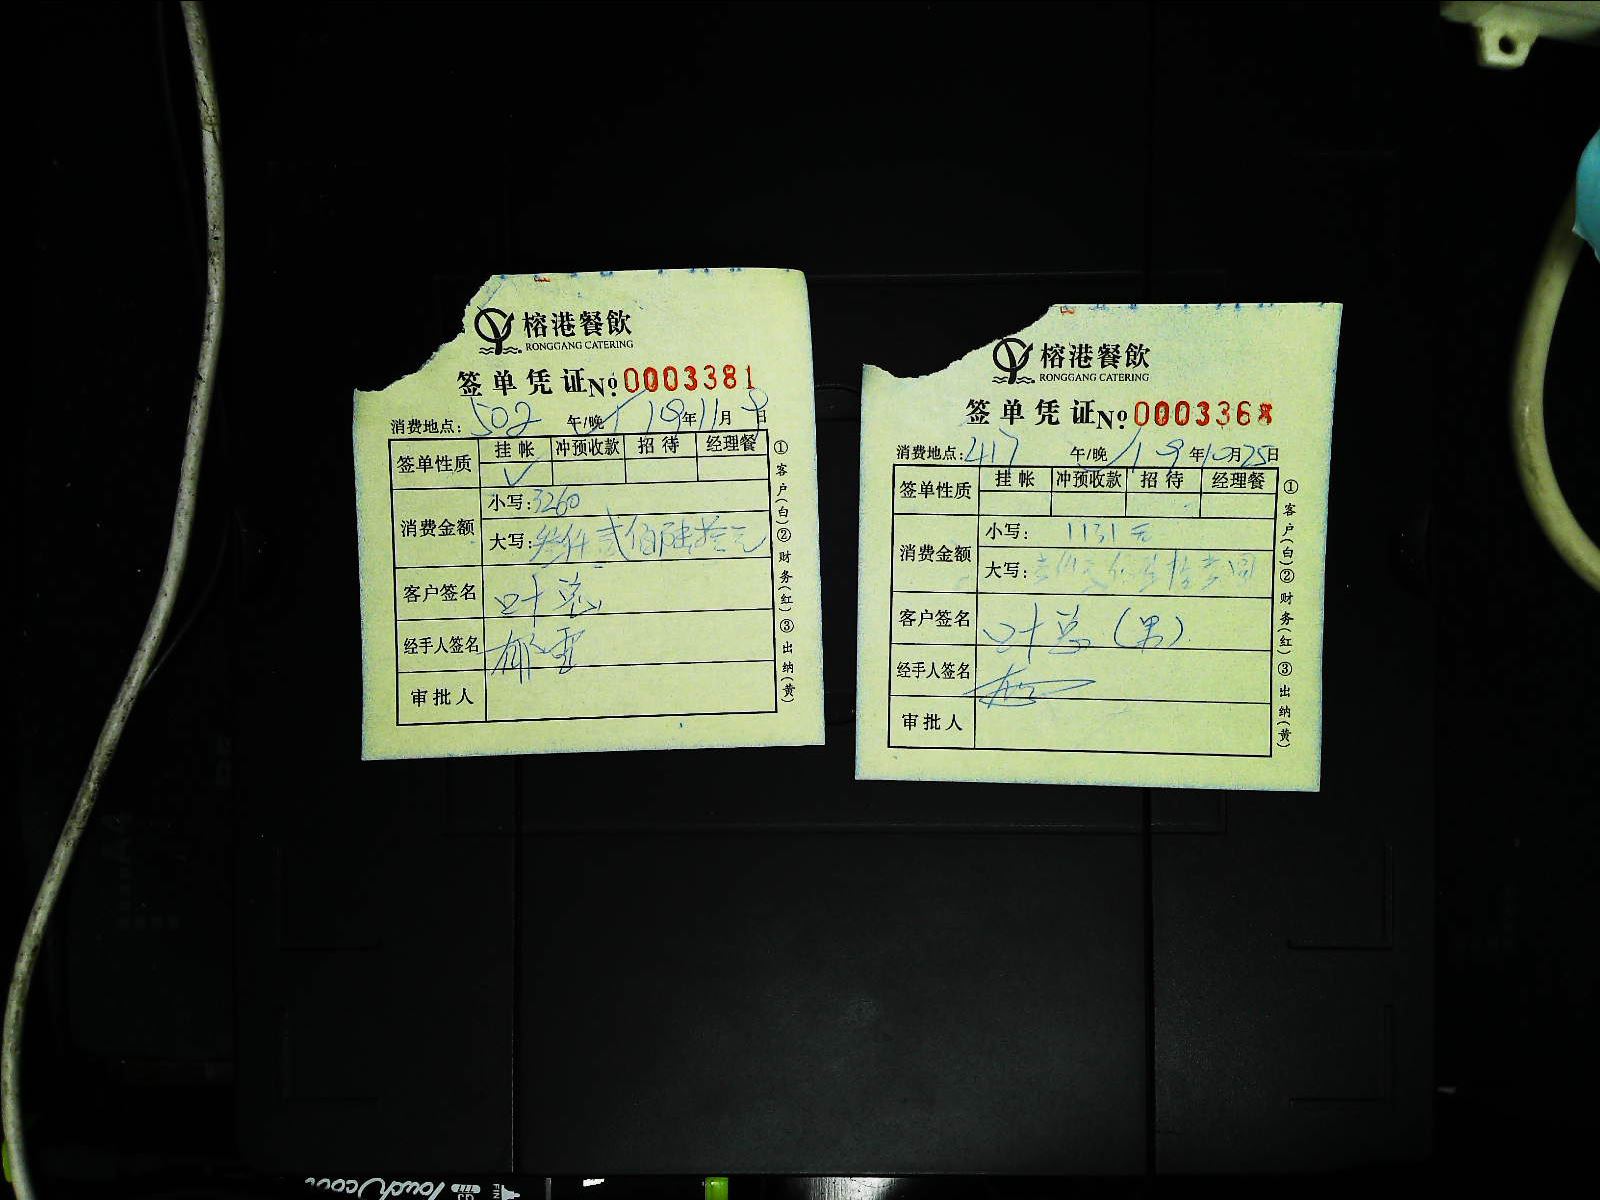 榕港餐飲
RONGGANG CATERING
签单凭证 No. 0003381
消费地点: 502 午/晚 19年11月 日
签单性质 挂帐 冲预收款 招待 经理餐
✓
消费金额 小写: 3260
大写: 叁仟贰佰陆拾元
客户签名 叶总
经手人签名 郁雪
审批人
①客户(白)②财务(红)③出纳(黄)
榕港餐飲
RONGGANG CATERING
签单凭证 No. 0003368
消费地点: 417 午/晚 19年10月25日
签单性质 挂帐 冲预收款 招待 经理餐
消费金额 小写: 1131元
大写:
客户签名 叶总(男)
经手人签名
审批人
①客户(白)②财务(红)③出纳(黄)
Touch cool